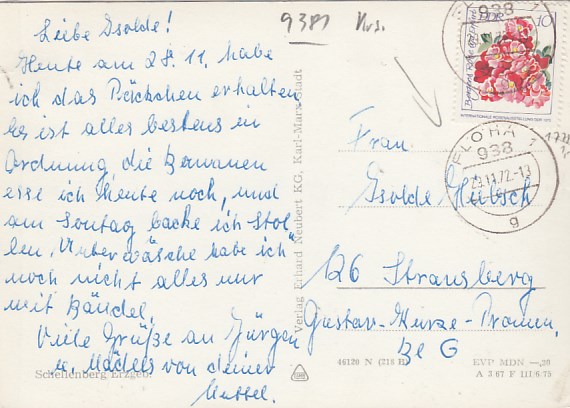 Liebe Isolde!
Heute am 28. 11. habe
ich das Päckchen erhalten
Es ist alles bestens in
Ordnung, die Bananen
esse ich Heute noch, und
am Sonntag backe ich Stol-
len, Unterwäsche habe ich
noch nicht alles nur
mit Bändel.
Viele Grüße an Jürgen
u. Mädels von deiner
Muttel.
Schellenberg Erzgeb.
Verlag Erhard Neubert KG, Karl-Marx-Stadt
9381
DDR
10
INTERNATIONALE ROSENAUSSTELLUNG 1972
938
FLÖHA 1
938
29.11.72-13
g
Frau
Isolde Hübsch
126 Strausberg
Gustav-Kurze-Promen.
46120 N
EVP MDN –,20
A 3 67 F III/6/75